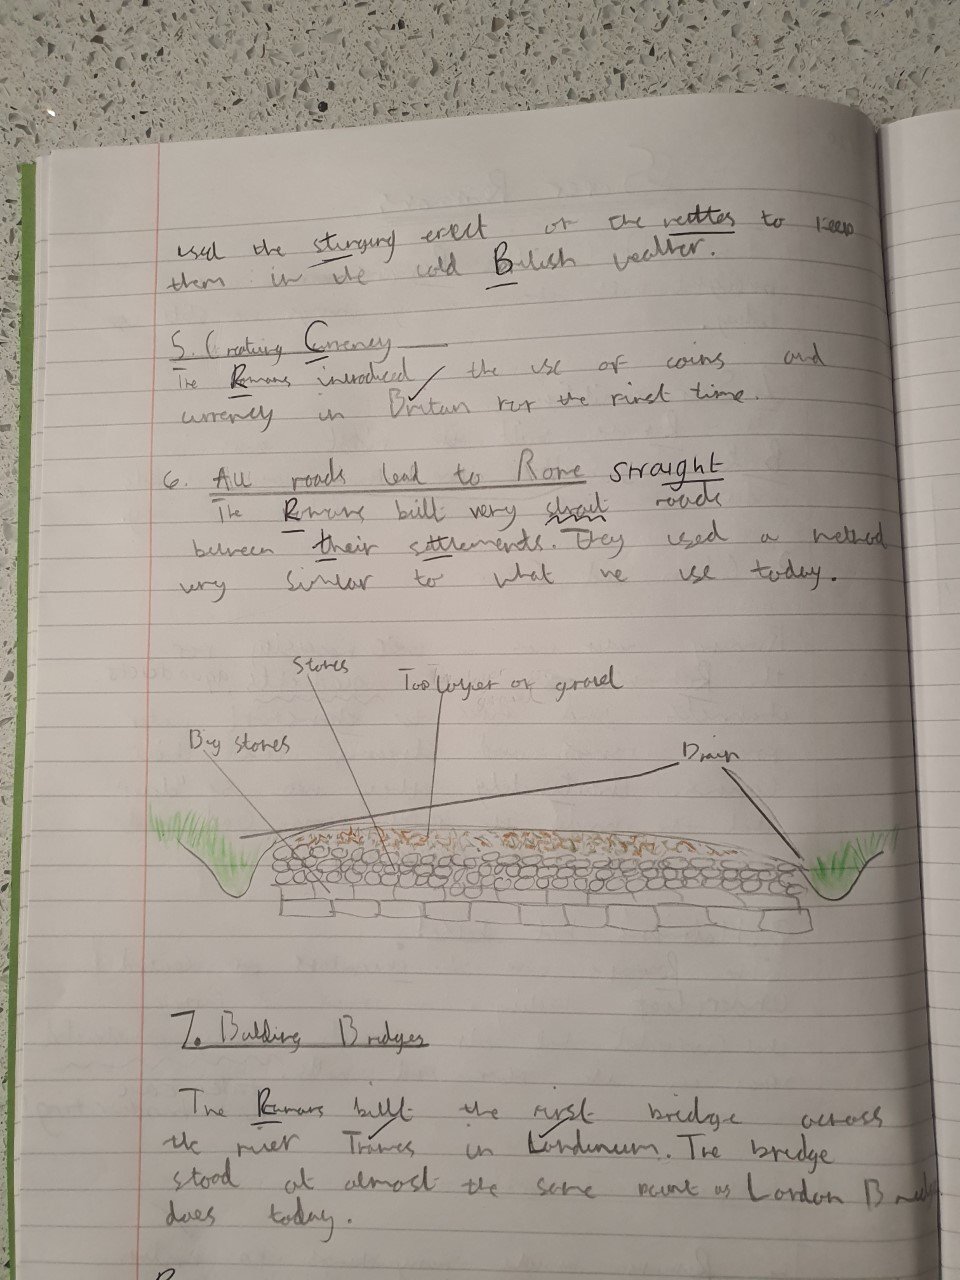 used the stinging effect of the nettles to keep
them in the cold British weather.
5. Creating Currency
The Romans introduced the use of coins and
currency in Britan for the first time.
6. All roads lead to Rome straight
The Romans built very strait roads
between their settlements. They used a method
very similar to what we use today.
Stones
Top layer of gravel
Big stones
Drain
7. Building Bridges
The Romans built the first bridge across
the river Thames in Londinium. The bridge
stood at almost the same point as London Bridge
does today.